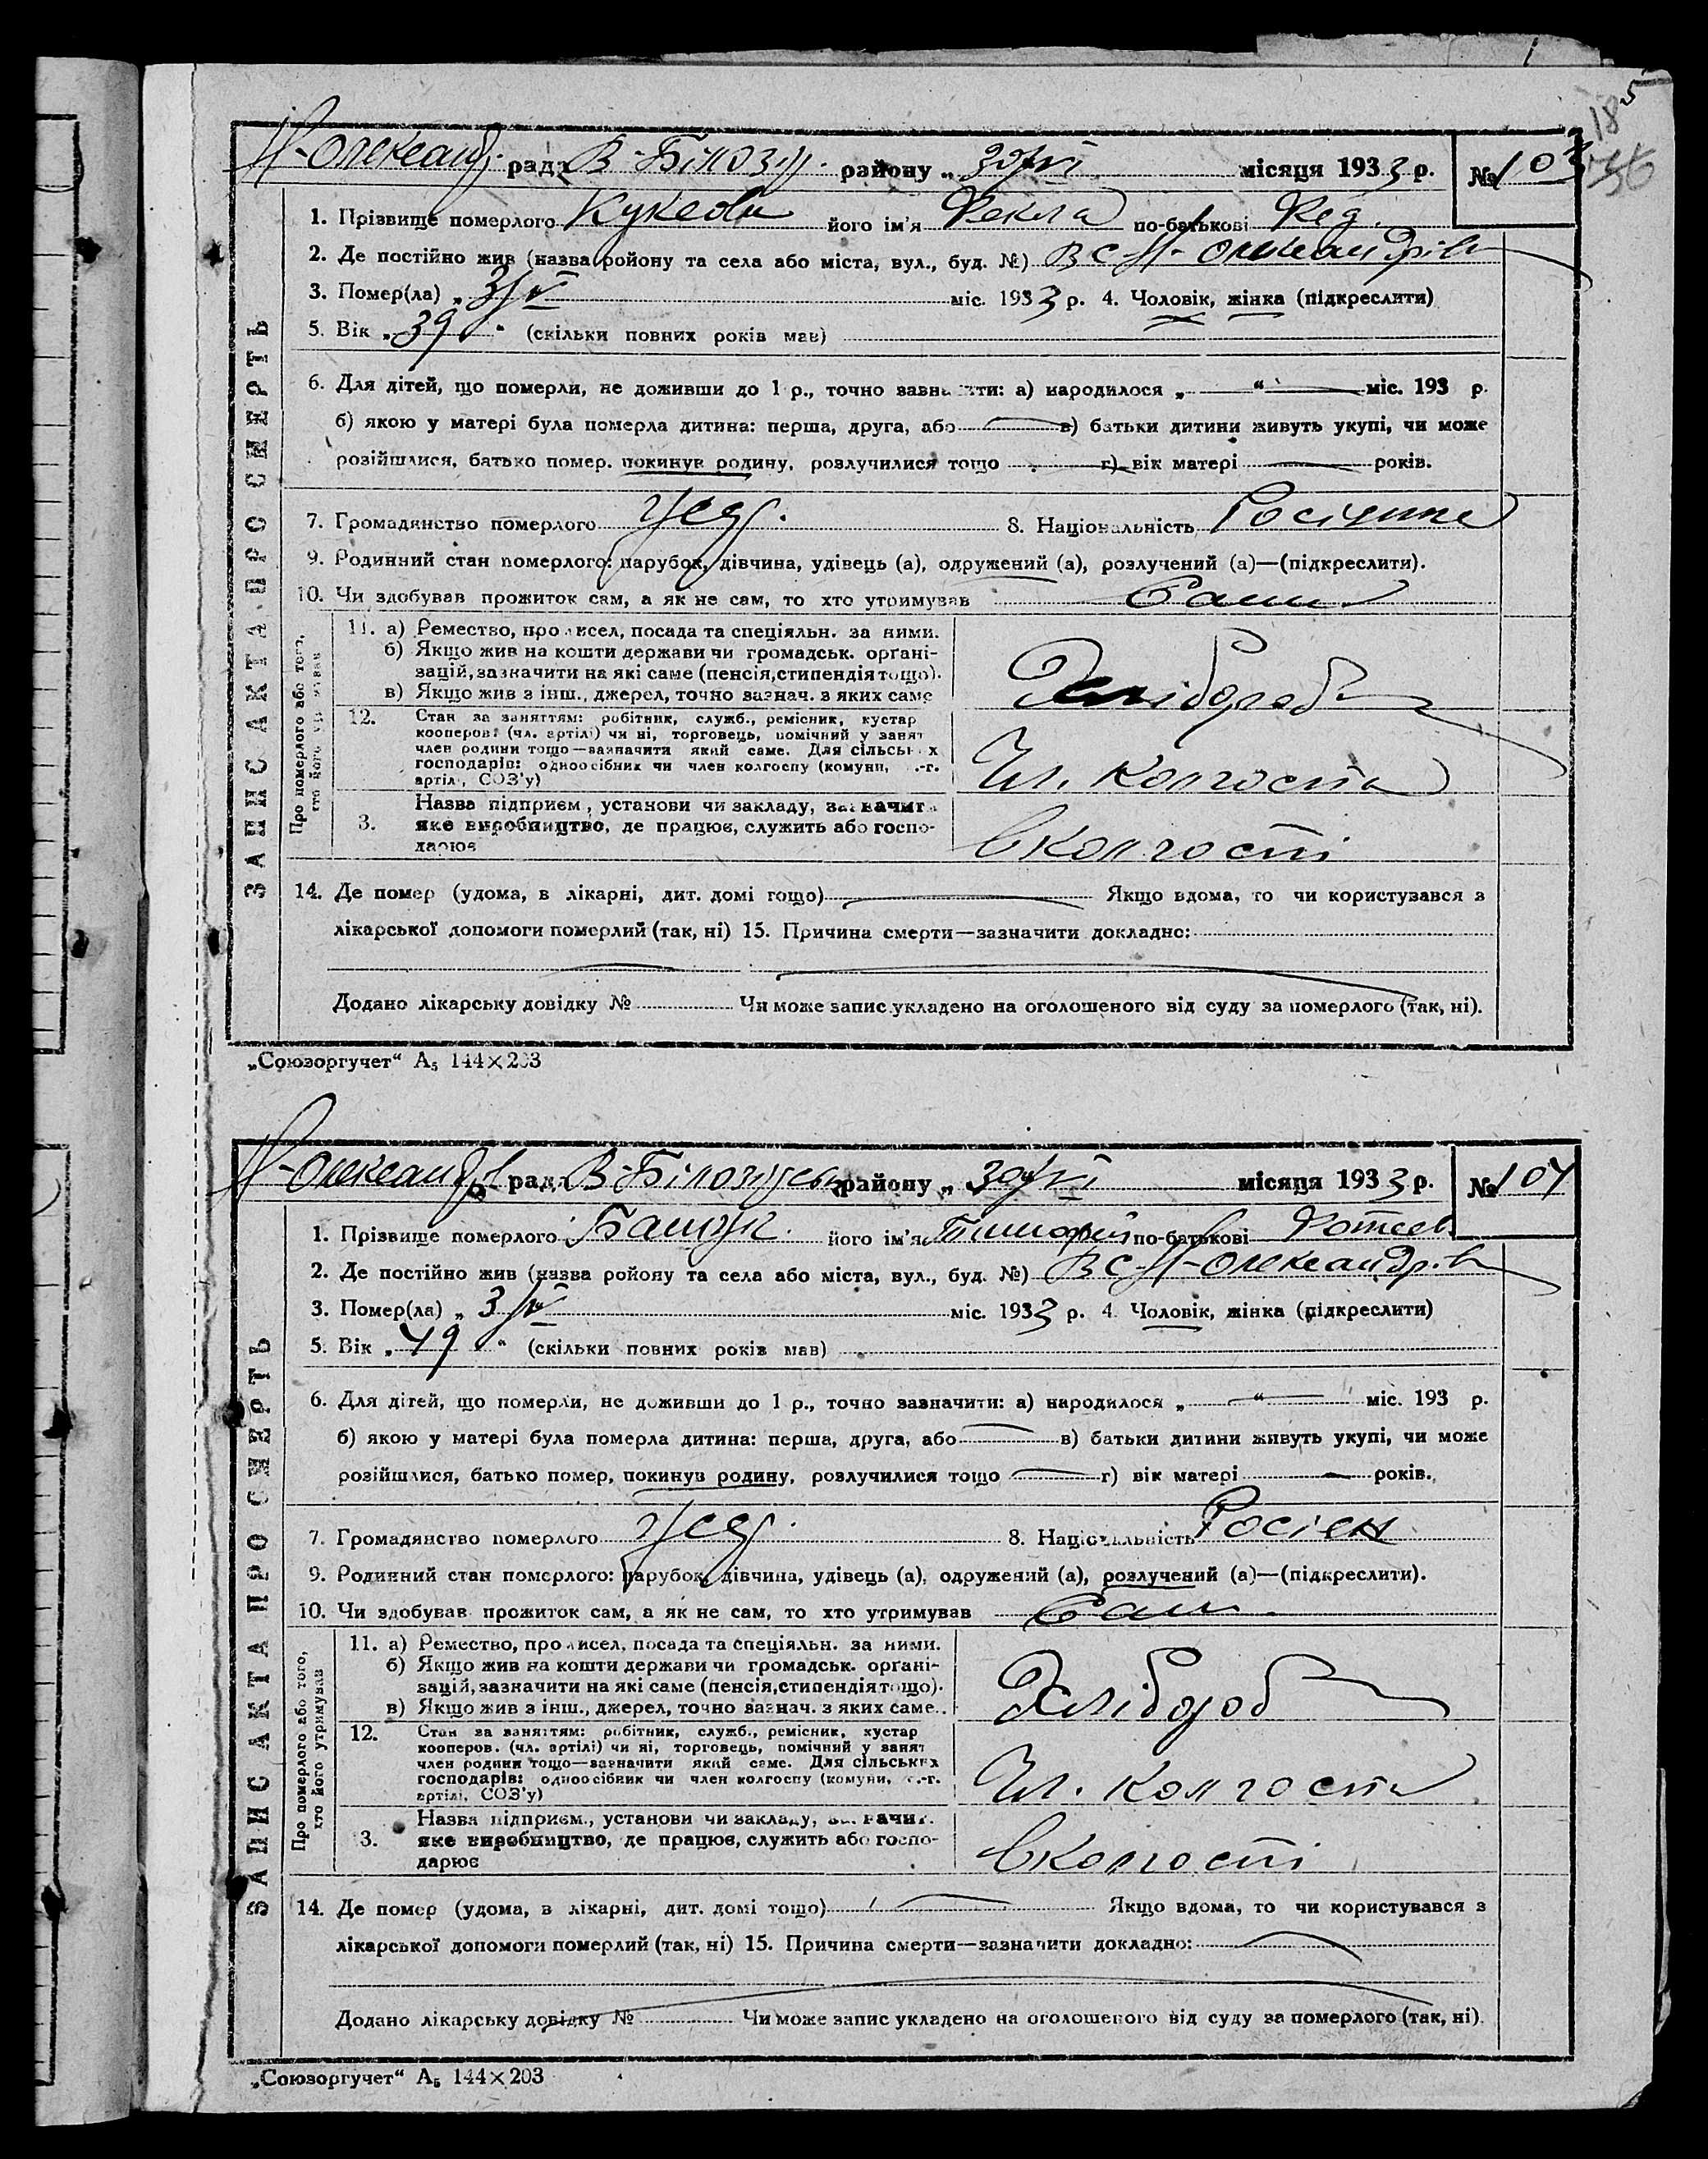 18 5
36
Н-Олександ. рад. В-Білозір. району „ 30/VI місяця 1933 р. № 103
ЗАПИС АКТА ПРО СМЕРТЬ
1. Прізвище померлого його ім'я Фекла по-батькові Фед.
2. Де постійно жив (назва ройону та села або міста, вул., буд. №) В С Н-Олександрів
3. Помер(ла) „ 3/V міс. 1933 р. 4. Чоловік, жінка (підкреслити)
5. Вік „ 39 “ (скільки повних років мав)
6. Для дітей, що померли, не доживши до 1 р., точно зазначити: а) народилося „ “ міс. 193 р.
б) якою у матері була померла дитина: перша, друга, або в) батьки дитини живуть укупі, чи може
розійшлися, батько помер, покинув родину, розлучилися тощо г) вік матері років.
7. Громадянство померлого 8. Національність
9. Родинний стан померлого: парубок, дівчина, удівець (а), одружений (а), розлучений (а)—(підкреслити).
10. Чи здобував прожиток сам, а як не сам, то хто утримував Сама
Про померлого або того, хто його утримував
11. а) Ремество, промисел, посада та спеціяльн. за ними.
б) Якщо жив на кошти держави чи громадськ. орґані-
зацій, зазначити на які саме (пенсія, стипендія тощо).
в) Якщо жив з інш., джерел, точно зазнач. з яких саме
Хлібороб
12. Стан за заняттям: робітник, служб., ремісник, кустар
кооперов. (чл. артілі) чи ні, торговець, помічний у занят
член родини тощо—зазначити який саме. Для сільських
господарів: одноосібник чи член колгоспу (комуни, с.-г.
артілі, СОЗ'у)
Чл. колгоспа
3. Назва підприєм., установи чи закладу, зазначит.
яке виробництво, де працює, служить або госпо-
дарює
В колгоспі
14. Де помер (удома, в лікарні, дит. домі тощо) Якщо вдома, то чи користувався з
лікарської допомоги померлий (так, ні) 15. Причина смерти—зазначити докладно:
Додано лікарську довідку № Чи може запис укладено на оголошеного від суду за померлого (так, ні).
„Союзоргучет“ А₅ 144×203
Н-Олександрів рад. В-Білозірськ району „ 30/VI місяця 1933 р. № 104
ЗАПИС АКТА ПРО СМЕРТЬ
1. Прізвище померлого його ім'я Тимофій по-батькові
2. Де постійно жив (назва ройону та села або міста, вул., буд. №) В С Н-Олександрів
3. Помер(ла) „ 3/V міс. 1933 р. 4. Чоловік, жінка (підкреслити)
5. Вік „ 49 “ (скільки повних років мав)
6. Для дітей, що померли, не доживши до 1 р., точно зазначити: а) народилося „ “ міс. 193 р.
б) якою у матері була померла дитина: перша, друга, або в) батьки дитини живуть укупі, чи може
розійшлися, батько помер, покинув родину, розлучилися тощо г) вік матері років.
7. Громадянство померлого 8. Національність Росіян
9. Родинний стан померлого: парубок, дівчина, удівець (а), одружений (а), розлучений (а)—(підкреслити).
10. Чи здобував прожиток сам, а як не сам, то хто утримував Сам
Про померлого або того, хто його утримував
11. а) Ремество, промисел, посада та спеціяльн. за ними.
б) Якщо жив на кошти держави чи громадськ. орґані-
зацій, зазначити на які саме (пенсія, стипендія тощо).
в) Якщо жив з інш., джерел, точно зазнач. з яких саме.
Хлібороб
12. Стан за заняттям: робітник, служб., ремісник, кустар
кооперов. (чл. артілі) чи ні, торговець, помічний у занят
член родини тощо—зазначити який саме. Для сільських
господарів: одноосібник чи член колгоспу (комуни, с.-г.
артілі, СОЗ'у)
Чл. колгоспа
3. Назва підприєм., установи чи закладу, зазначит.
яке виробництво, де працює, служить або госпо-
дарює
В колгоспі
14. Де помер (удома, в лікарні, дит. домі тощо) Якщо вдома, то чи користувався з
лікарської допомоги померлий (так, ні) 15. Причина смерти—зазначити докладно:
Додано лікарську довідку № Чи може запис укладено на оголошеного від суду за померлого (так, ні).
„Союзоргучет“ А₅ 144×203